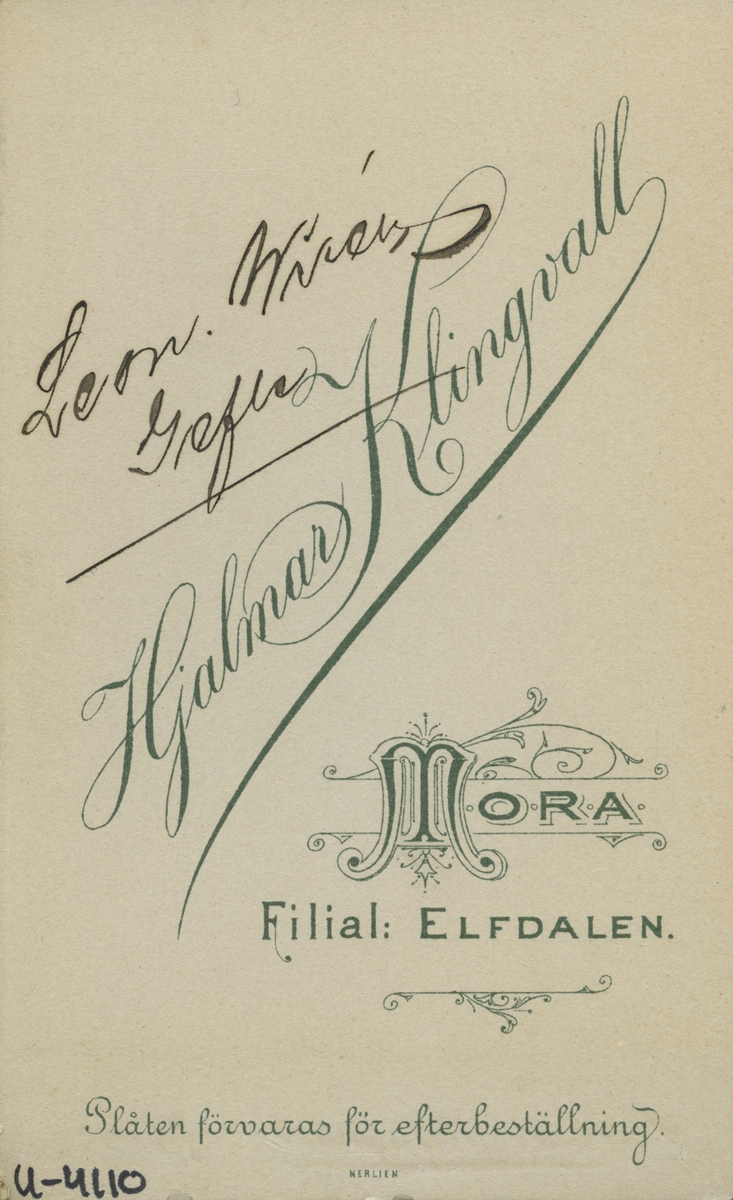 Leon. Wirén
Gefle
Hjalmar Klingvall
MORA.
Filial: ELFDALEN.
Plåten förvaras för efterbeställning.
NERLIEN
U-4110